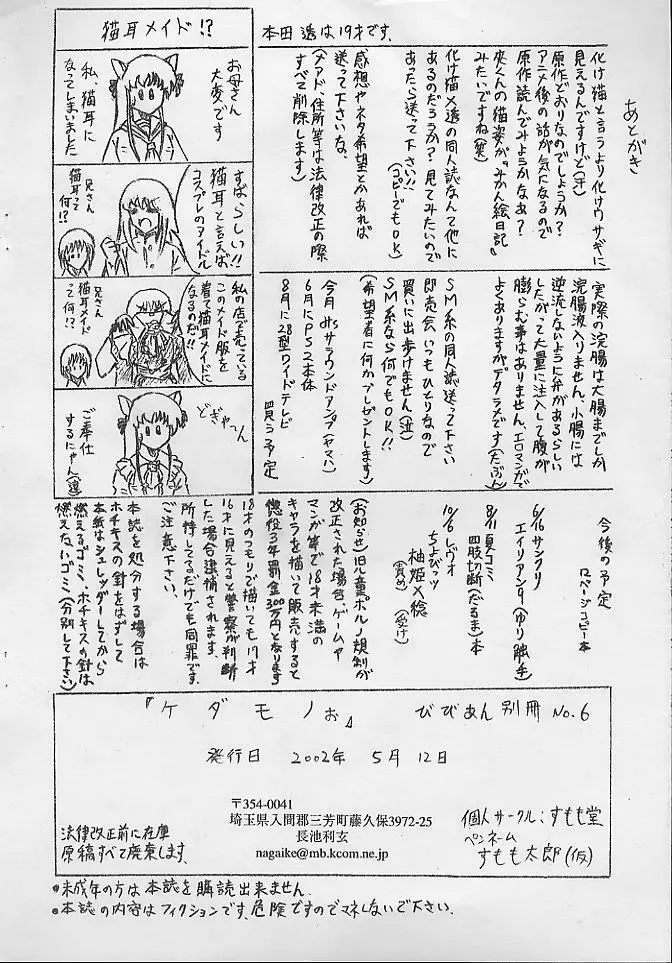 あとがき
化け猫と言うより化けウサギに
見えるんですけど(汗)
原作どおりなのでしょうか?
アニメ後の話が気になるので
原作読んでみようかなあ?
夾くんの猫姿が『みかん絵日記』
みたいですね(笑)
化け猫×透の同人誌なんて他に
あるのだろうか?見てみたいので
あったら送って下さい!!
(コピーでもOK)
感想やネタ希望とかあれば
送って下さいな。
(メアド、住所等は法律改正の際
すべて削除します)
本田 透は19才です。
実際の浣腸は大腸までしか
浣腸液入りません、小腸には
逆流しないように弁があるらしい
したがって大量に注入して腹が
膨らむ事はありません、エロマンガで
よくありますがデタラメです(たぶん)
SM系の同人誌送って下さい
即売会いつもひとりなので
買いに出歩けません(泣)
SM系なら何でもOK!!
(希望者に何かプレゼントします)
今月 サラウンドアンプ(ヤマハ)
6月にPS2本体
8月に28型ワイドテレビ
買う予定
今後の予定
ロページコピー本
6/16 サンクリ
エイリアン9(ゆり触手)
8/11 夏コミ
四肢切断(だるま)本
10/6 レヴォ
ちょびッツ
柚姫×稔
(責め) (受け)
(お知らせ)旧児童ポルノ規制が
改正された場合、ゲームや
マンガ等で18才未満の
キャラを描いて販売すると
懲役3年罰金300万円となります
18才のつもりで描いても17才
16才に見えると警察が判断
した場合逮捕されます。
所持してるだけでも同罪です
ご注意下さい。
本誌を処分する場合は
ホチキスの針をはずして
本紙はシュレッダーしてから
燃えるゴミ、ホチキスの針は
燃えないゴミ(分別して下さい)
猫耳メイド!?
お母さん
大変です
私、猫耳に
なってしまいました
すばらしい!!
猫耳と言えば
コスプレのアイドル
兄さん
猫耳って
何!?
私の店で売っている
このメイド服を
着て猫耳メイドに
なるのだ!!
兄さん
猫耳メイド
って何!?
どぎゃーん
ご奉仕
するにゃん(透)
『ケダモノぉ』 びびあん別冊 No.6
発行日 2002年 5月 12日
〒354-0041
埼玉県入間郡三芳町藤久保3972-25
長池利玄
nagaike@mb.kcom.ne.jp
個人サークル:すもも堂
ペンネーム
すもも太郎(仮)
法律改正前に在庫
原稿すべて廃棄します。
●未成年の方は本誌を購読出来ません。
●本誌の内容はフィクションです、危険ですのでマネしないで下さい。